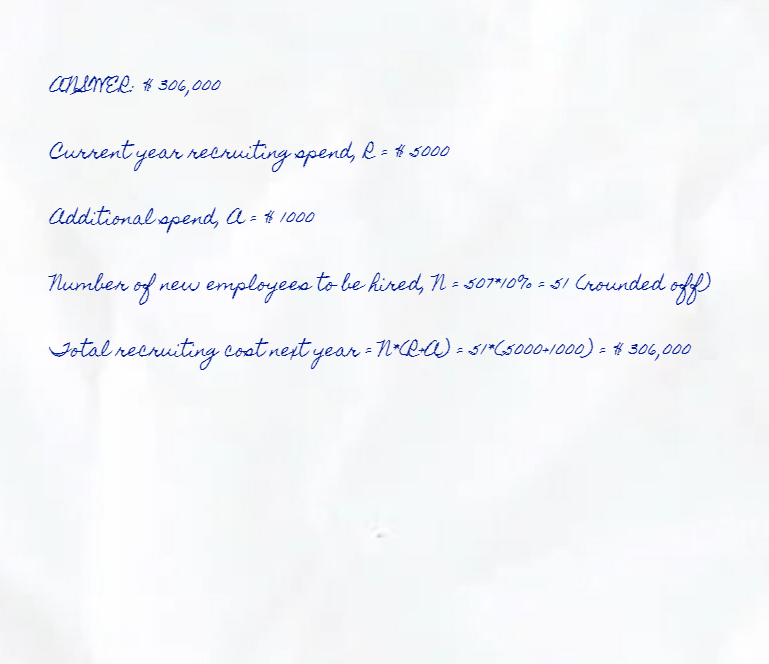 ANSWER: $ 306,000
Current year recruiting spend, R = $ 5000
Additional spend, A = $ 1000
Number of new employees to be hired, N = 507*10% = 51 (rounded off)
Total recruiting cost next year = N*(R+A) = 51*(5000+1000) = $ 306,000